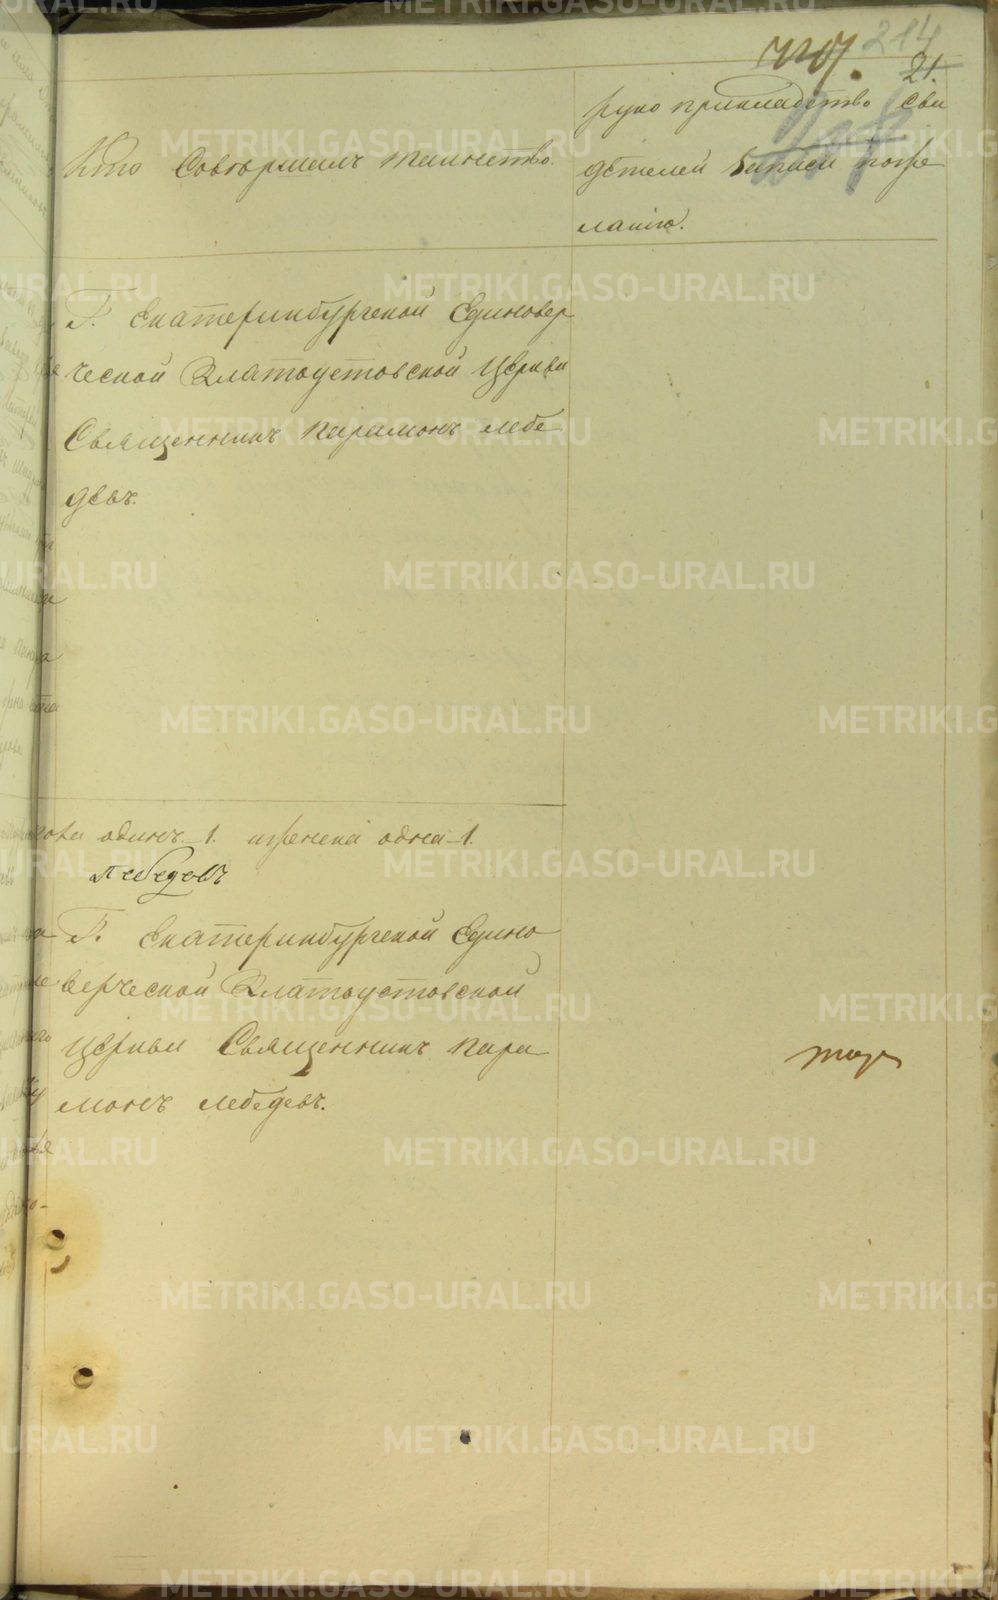 214
21.
Кто Совершилъ таинство.
руко прикладство Сви
дѣтелей Записи по же
ланію.
Г. Екатеринбургской Единовер
ческой Златоустовской Церкви
Священникъ Парамонъ Лебе
девъ.
одинъ 1. женска одна 1.
Лебедевъ
Г. Екатеринбургской Едино
верческой Златоустовской
Церкви Священникъ Пара
монъ Лебедевъ.
METRIKI.GASO-URAL.RU